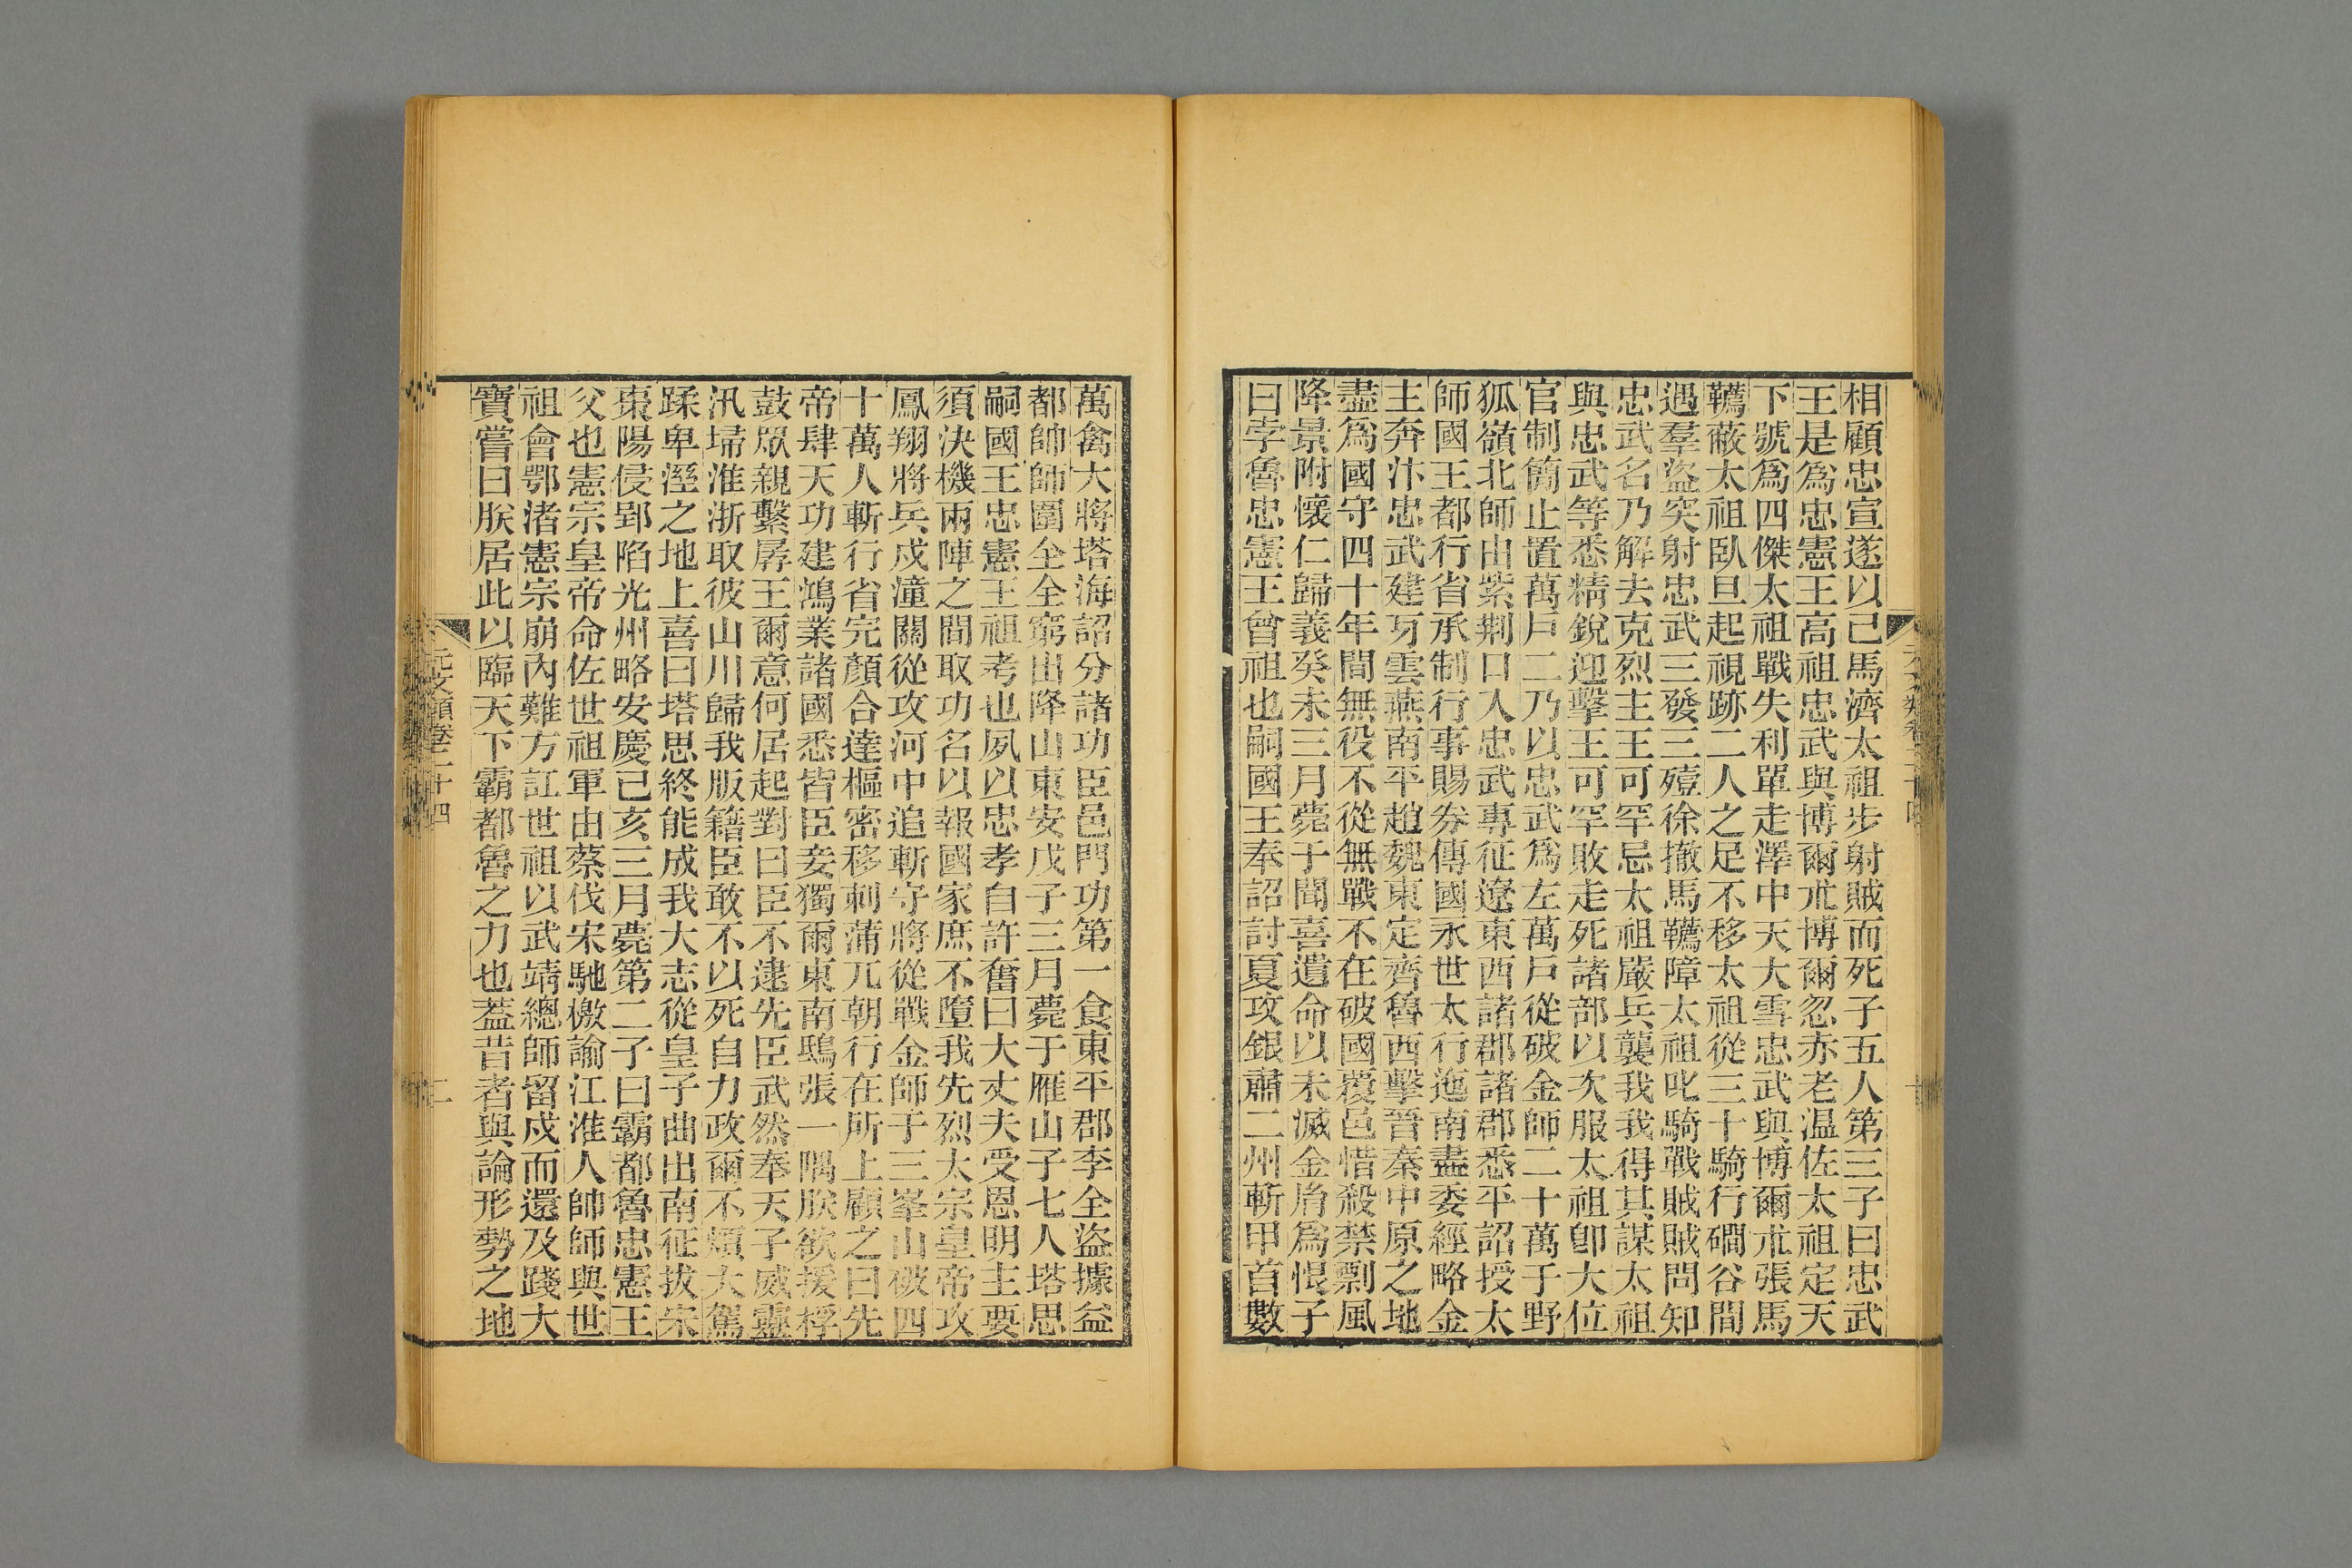 相顧忠宣遂以己馬濟太祖步射賊而死子五人第三子曰忠武
王是爲忠憲王高祖忠武與博爾朮博爾忽赤老温佐太祖定天
下號爲四傑太祖戰失利單走澤中天大雪忠武與博爾朮張馬
韉蔽太祖臥旦起視跡二人之足不移太祖從三十騎行磵谷間
遇羣盜突射忠武三發三殪徐撤馬韉障太祖叱騎戰賊賊問知
忠武名乃解去克烈主王可罕忌太祖嚴兵襲我我得其謀太祖
與忠武等悉精銳迎擊王可罕敗走死諸部以次服太祖卽大位
官制簡止置萬戶二乃以忠武爲左萬戶從破金師二十萬于野
狐嶺北師由紫荆口入忠武專征遼東西諸郡諸郡悉平詔授太
師國王都行省承制行事賜券傳國永世太行迤南盡委經略金
主奔汴忠武建牙雲燕南平趙魏東定齊魯西擊晉秦中原之地
盡爲國守四十年間無役不從無戰不在破國覆邑惜殺禁剽風
降景附懷仁歸義癸未三月薨于聞喜遺命以未滅金爲恨子
曰孛魯忠憲王曾祖也嗣國王奉詔討夏攻銀肅二州斬甲首數
萬禽大將塔海詔分諸功臣邑門功第一食東平郡李全盜據益
都帥師圍全全窮出降山東安戊子三月薨于雁山子七人塔思
嗣國王忠憲王祖考也夙以忠孝自許奮曰大丈夫受恩明主要
須決機兩陣之間取功名以報國家庶不墮我先烈太宗皇帝攻
鳳翔將兵戍潼關從攻河中追斬守將從戰金師于三峯山破四
十萬人斬行省完顏合達樞密移剌蒲兀朝行在所上顧之曰先
帝肆天功建鴻業諸國悉皆臣妾獨爾東南鴟張一隅朕欲援桴
鼓眾親繫孱王爾意何居起對曰臣不逮先臣武然奉天子威靈
汛埽淮浙取彼山川歸我版籍臣敢不以死自力政爾不煩大駕
蹂卑溼之地上喜曰塔思終能成我大志從皇子曲出南征拔宋
棗陽侵郢陷光州略安慶己亥三月薨第二子曰霸都魯忠憲王
父也憲宗皇帝命佐世祖軍由蔡伐宋馳檄諭江淮人帥師與世
祖會鄂渚憲宗崩內難方訌世祖以武靖總師留戍而還及踐大
寶嘗曰朕居此以臨天下霸都魯之力也蓋昔者與論形勢之地
元文類卷二十四
二